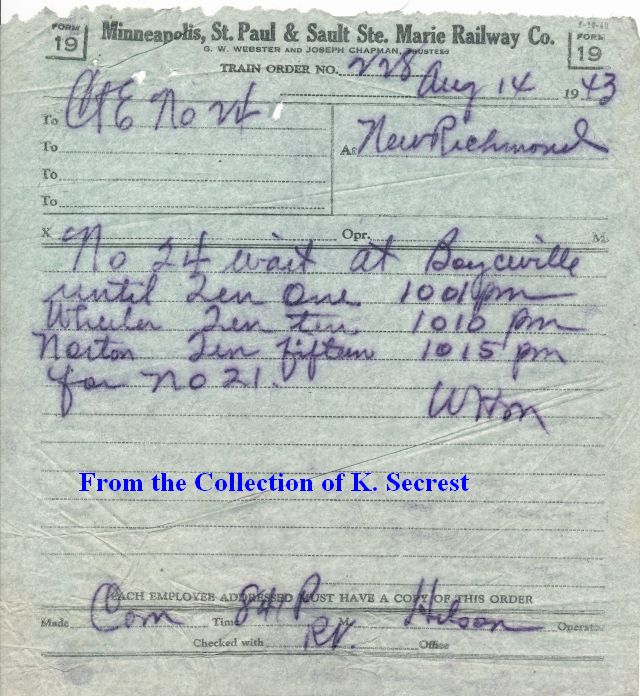 FORM 19
Minneapolis, St. Paul & Sault Ste. Marie Railway Co.
FORM 19
G. W. WEBSTER AND JOSEPH CHAPMAN, TRUSTEES
TRAIN ORDER NO. 228
Aug 14 1943
To C&E No 24
At New Richmond
To
To
To
X Opr. M
No 24 wait at Boyceville
until Ten One 1001 pm
Wheeler Ten ten 1010 pm
Norton Ten fifteen 1015 pm
for No 21.
WHM
From the Collection of K. Secrest
EACH EMPLOYEE ADDRESSED MUST HAVE A COPY OF THIS ORDER
Made Com Time 841 P M. Hilson Operator
Checked with Office